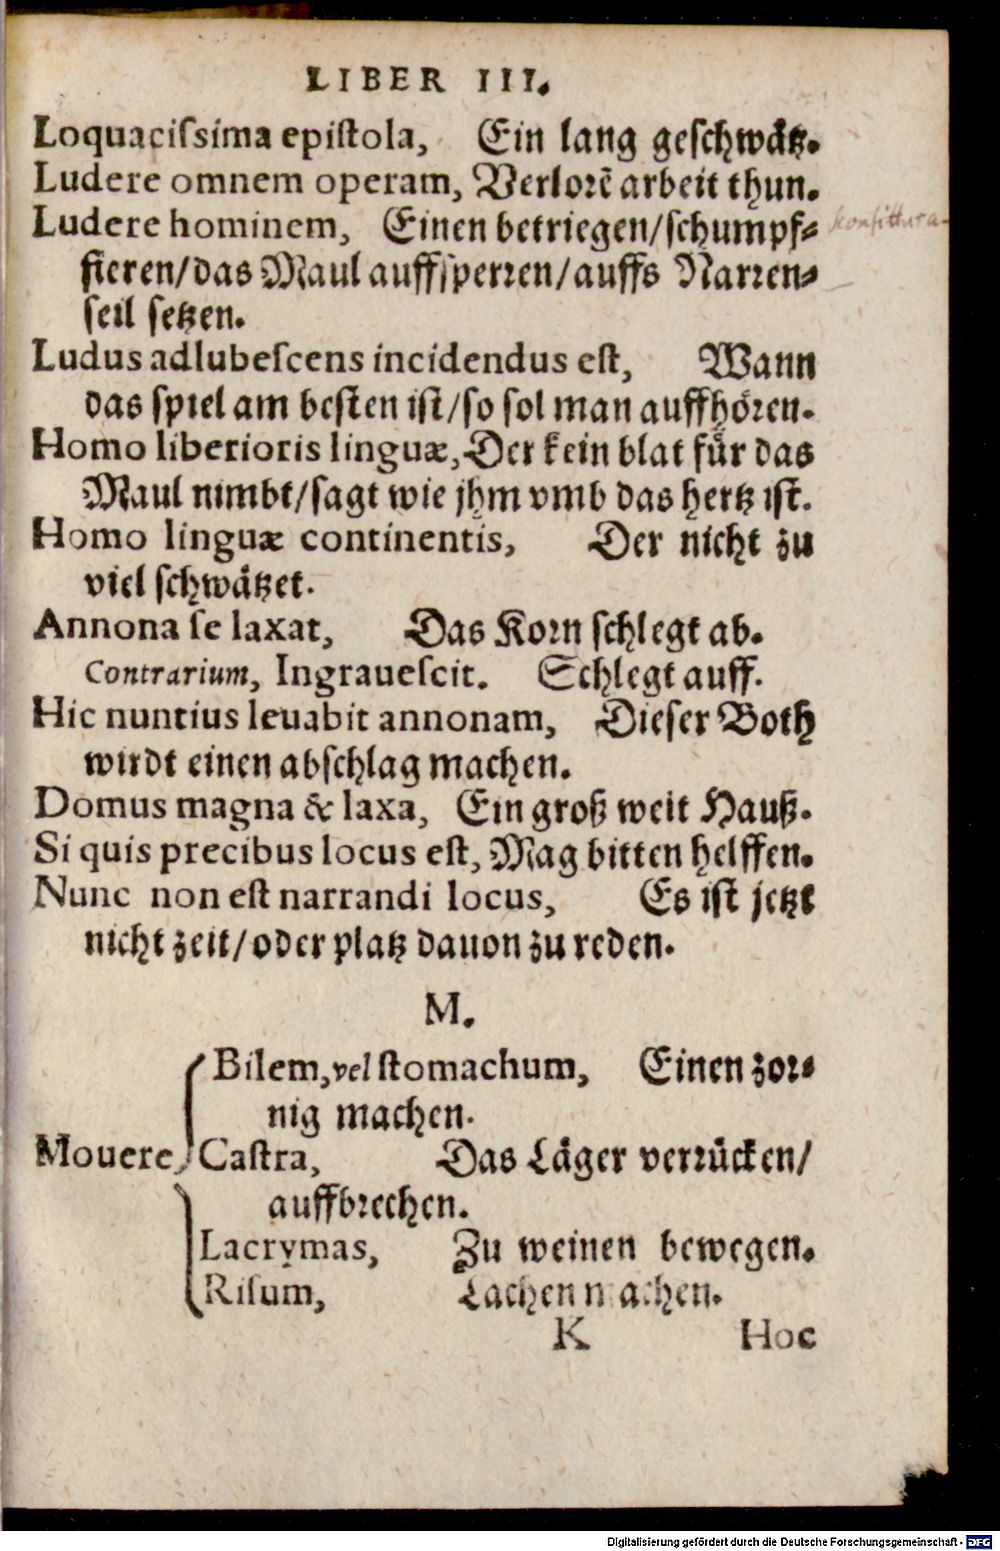 LIBER III.
Loquaciſsima epiſtola, Ein lang geſchwaͤtz.
Ludere omnem operam, Verlorẽ arbeit thun.
Ludere hominem, Einen betriegen/ſchumpf⸗
fieren/das Maul auffſperren/auffs Narren⸗
ſeil ſetzen.
Ludus adlubeſcens incidendus eſt, Wann
das ſpiel am beſten iſt/ſo ſol man auffhoͤren.
Homo liberioris linguæ, Der kein blat fuͤr das
Maul nimbt/ſagt wie jhm vmb das hertz iſt.
Homo linguæ continentis, Der nicht zu
viel ſchwaͤtzet.
Annona ſe laxat, Das Korn ſchlegt ab.
Contrarium, Ingraueſcit. Schlegt auff.
Hic nuntius leuabit annonam, Dieſer Both
wirdt einen abſchlag machen.
Domus magna & laxa, Ein groß weit Hauß.
Si quis precibus locus eſt, Mag bitten helffen.
Nunc non eſt narrandi locus, Es iſt jetzt
nicht zeit/oder platz dauon zu reden.
M.
Bilem, vel ſtomachum, Einen zor⸗
nig machen.
Mouere Caſtra, Das Laͤger verruͤcken/
auffbrechen.
Lacrymas, Zu weinen bewegen.
Riſum, Lachen machen.
K Hoc
Digitalisierung gefördert durch die Deutsche Forschungsgemeinschaft - DFG